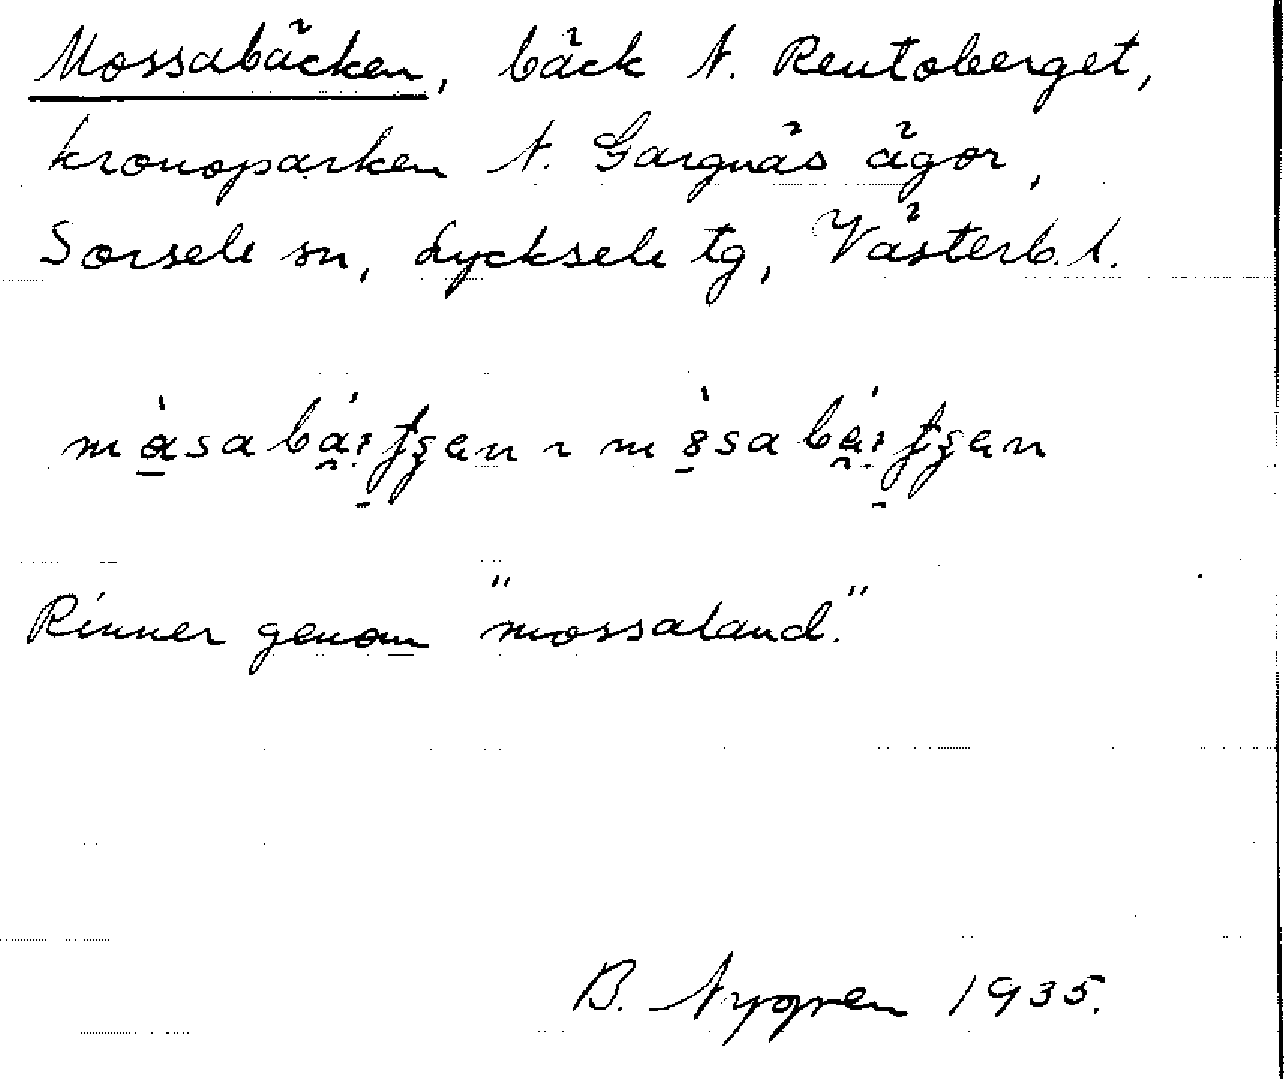 Mossabäcken, bäck N. Rentoberget,
kronoparken N. Gargnäs ägor,
Sorsele sn, Lycksele tg, Västerb. l.
Rinner genom "mossaland."
B. Nygren 1935.